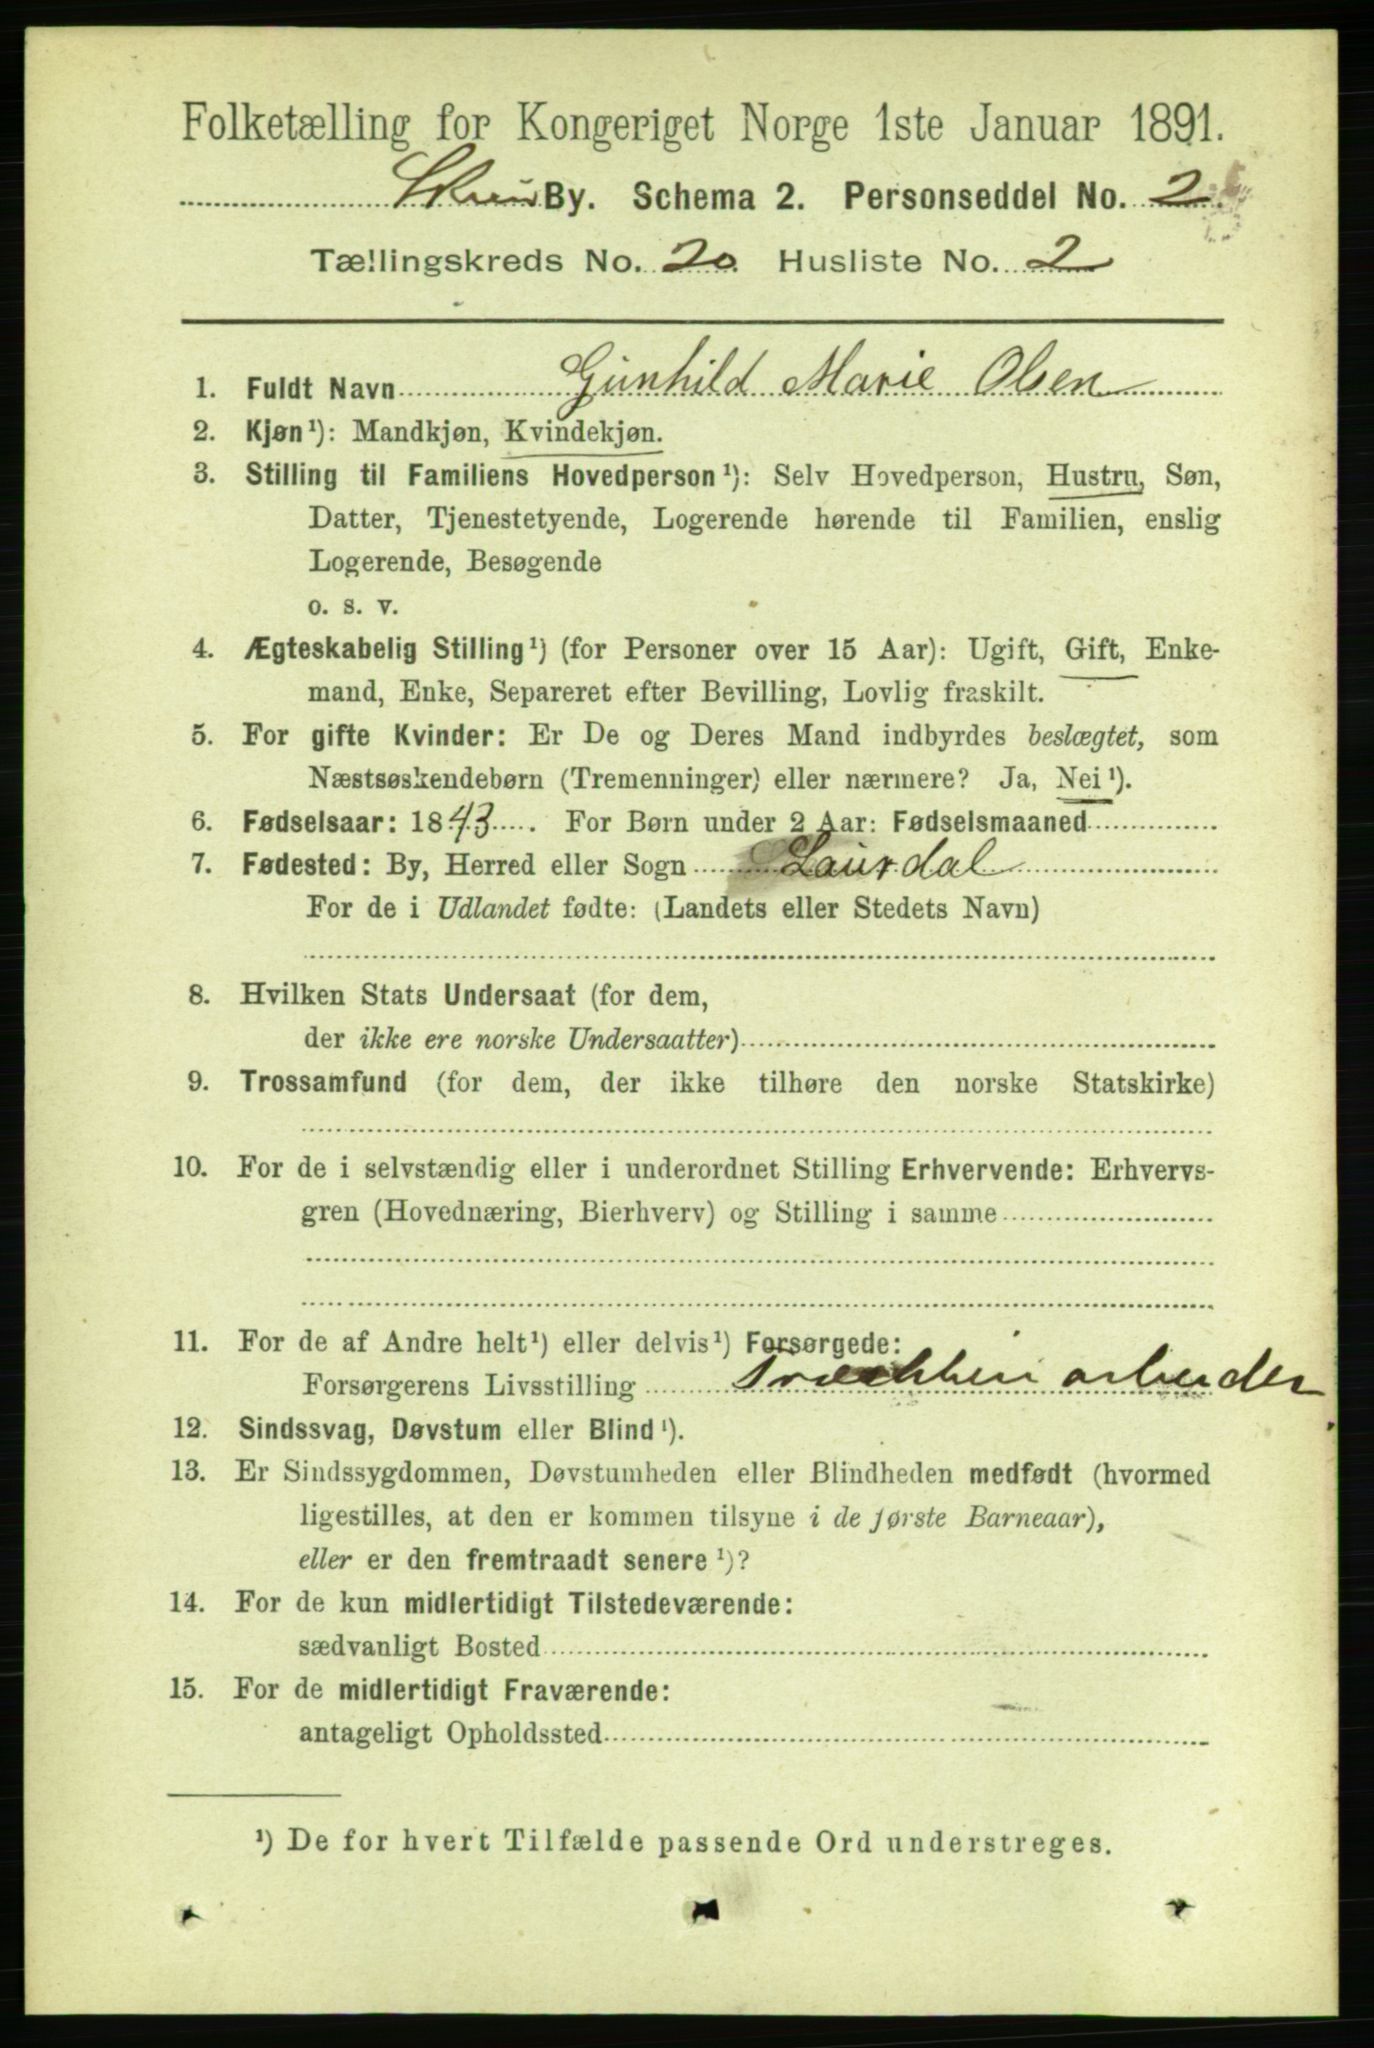 Folketælling for Kongeriget Norge 1ste Januar 1891.
Skien By. Schema 2. Personseddel No. 2
Tællingskreds No. 20 Husliste No. 2
1. Fuldt Navn Gunhild Marie Olsen
2. Kjøn¹): Mandkjøn, Kvindekjøn.
3. Stilling til Familiens Hovedperson¹): Selv Hovedperson, Hustru, Søn,
Datter, Tjenestetyende, Logerende hørende til Familien, enslig
Logerende, Besøgende
o. s. v.
4. Ægteskabelig Stilling¹) (for Personer over 15 Aar): Ugift, Gift, Enke-
mand, Enke, Separeret efter Bevilling, Lovlig fraskilt.
5. For gifte Kvinder: Er De og Deres Mand indbyrdes beslægtet, som
Næstsøskendebørn (Tremenninger) eller nærmere? Ja, Nei¹).
6. Fødselsaar: 1843. For Børn under 2 Aar: Fødselsmaaned
7. Fødested: By, Herred eller Sogn Laurdal
For de i Udlandet fødte: (Landets eller Stedets Navn)
8. Hvilken Stats Undersaat (for dem,
der ikke ere norske Undersaatter)
9. Trossamfund (for dem, der ikke tilhøre den norske Statskirke)
10. For de i selvstændig eller i underordnet Stilling Erhvervende: Erhvervs-
gren (Hovednæring, Bierhverv) og Stilling i samme
11. For de af Andre helt¹) eller delvis¹) Forsørgede:
Forsørgerens Livsstilling arbeider
12. Sindssvag, Døvstum eller Blind¹).
13. Er Sindssygdommen, Døvstumheden eller Blindheden medfødt (hvormed
ligestilles, at den er kommen tilsyne i de første Barneaar),
eller er den fremtraadt senere¹)?
14. For de kun midlertidigt Tilstedeværende:
sædvanligt Bosted
15. For de midlertidigt Fraværende:
antageligt Opholdssted
¹) De for hvert Tilfælde passende Ord understreges.